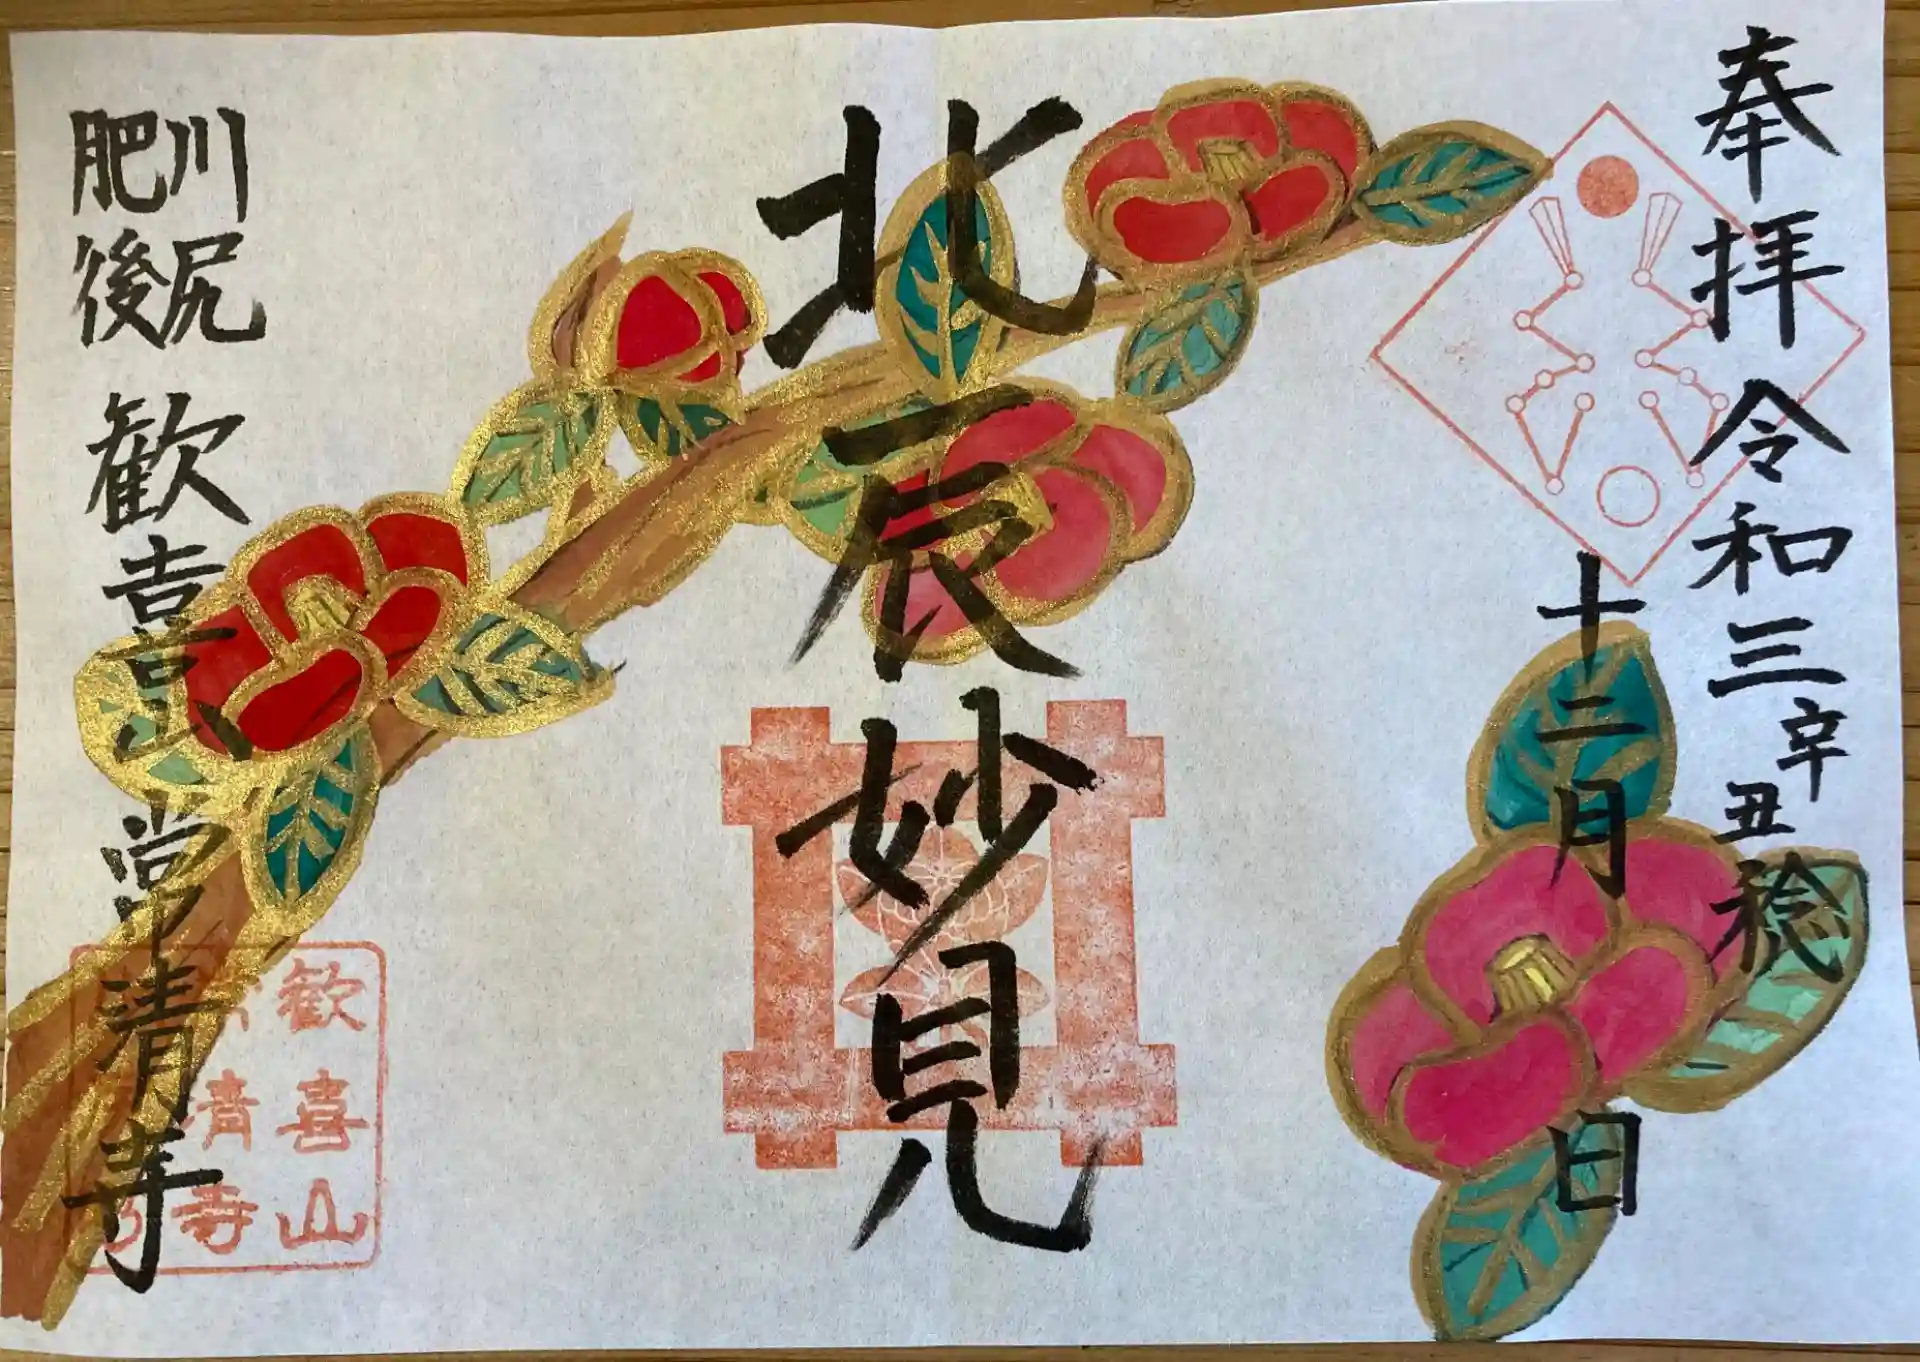 奉拝 令和三辛丑稔
十二月 日
北辰妙見
川尻
肥後
歓喜山 常清寺
歓喜山
清寺